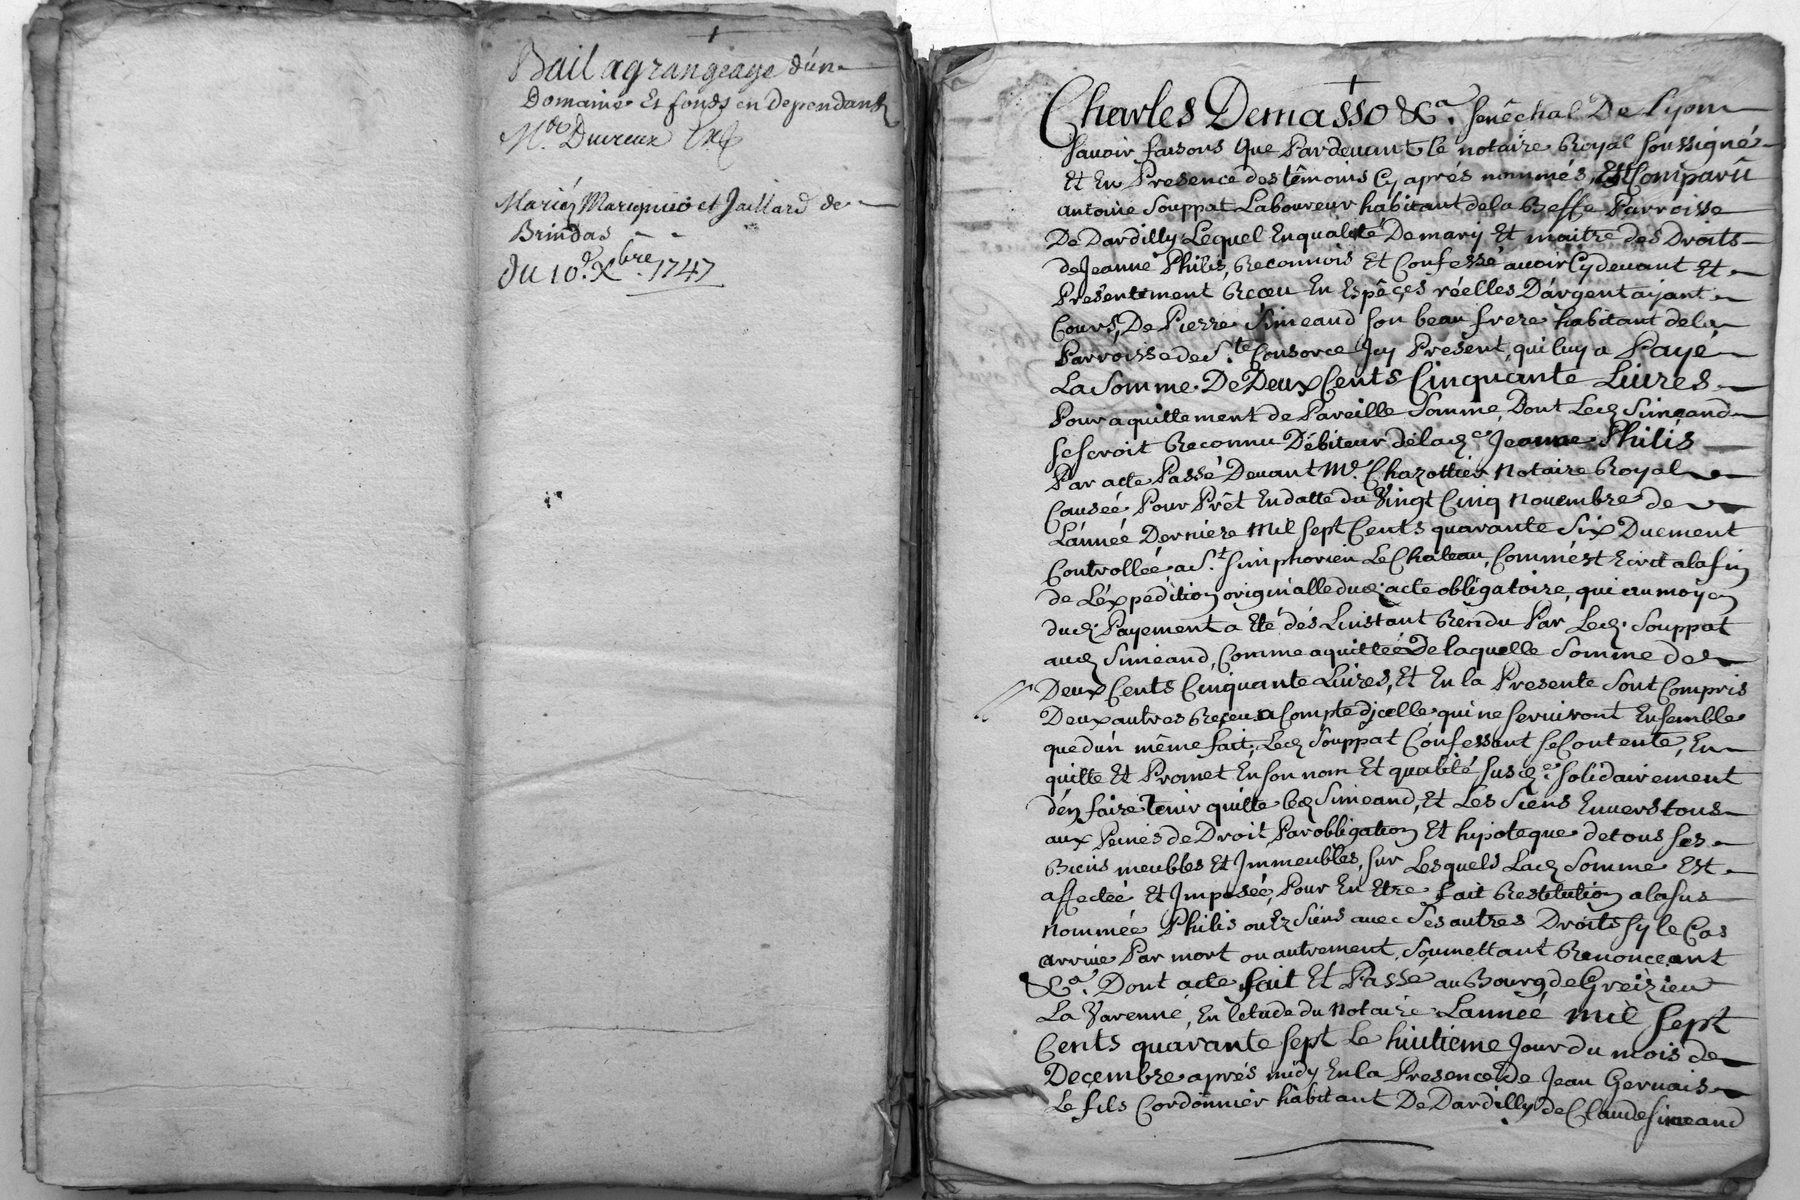 Bail agrangeage d'un
Domaine Et fonds en dependant
Me Ducreux
Mariés Marignier et Jaillard de
Brindas
Du 10e Xbre 1747
Charles Demasso &a. senêchal De Lyon
Savoir faisons Que Pardevant le notaire Royal soussigné
Et En Presence des têmoins Cy aprés nommés, Est Comparû
antoine Souppat Laboureur habitant de la Beffe Parroisse
De Dardilly Lequel En qualité De mary Et maitre des Droits
de Jeanne Philis, Reconnois Et Confesse avoir Cy devant Et
Presentement Reçeu En Espêçes réelles D'argent ayant
Cours, De Pierre Simeand son beau frere habitant de la
Parroisse de Ste. Consorce Jcy Present, qui luy a Payé
La Somme De Deux Cents Cinquante Livres
Pour aquittement de Pareille Somme Dont Led. Simeand
se seroit Reconnu Débiteur de lad.e Jeanne Philis
Par acte Passé Devant Me. Chazottier Notaire Royal
Causée Pour Prêt En datte du Vingt Cinq Novembre de
L'année Derniere Mil sept Cents quarante Six Duement
Controllée a St. Simphorien Le Chateau, Comm'est Ecrit a la fin
de L'éxpédition originalle dud. acte obligatoire, qui au moyen
dud. Payement a Eté dés L'instant Rendu Par Led. Souppat
aud. Simeand, Comme aquittée De laquelle Somme de
Deux Cents Cinquante Livres, Et En la Presente Sont Compris
Deux autres Reçeu a Compte d'jcelle qui ne serviront Ensemble
que d'un même fait, Led. Souppat Confessant se Contente, En
quitte Et Promet En son nom Et qualité susd.e solidairement
d'en faire tenir quitte led. Simeand, Et Les Siens Envers tous
aux Peines de Droit Par obligation Et hipoteque de tous ses
Biens meubles Et Jmmeubles, sur Lesquels Lad. Somme Est
affectée Et Jmposée, Pour En Etre fait Restitution a la sus
nommée Philis ou Ez Siens avec Ses autres Droits sy le Cas
arrive Par mort ou autrement, Soumettant Renonceant
&a. Dont acte fait Et Passé au Bourg de Greizieu
La Varenne, En l'etude du Notaire L'année mil sept
Cents quarante sept Le huitieme Jour du mois de
Decembre aprés midy En la Presence de Jean Gervais
Le fils Cordonnier habitant De Dardilly, de Claude Simeand